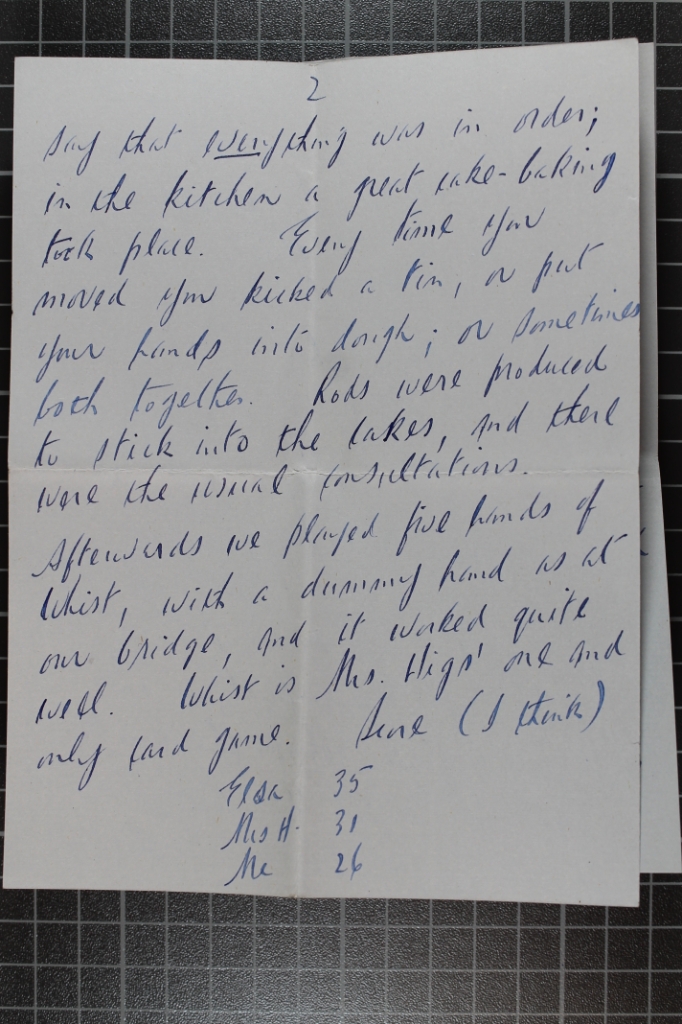 2
say that everything was in order;
in the kitchen a great cake-baking
took place. Every time you
moved you kicked a tin, or put
your hands into dough; or sometimes
both together. Rods were produced
to stick into the cakes, and there
were the usual consultations.
Afterwards we played five hands of
Whist, with a dummy hand as at
our bridge, and it worked quite
well. Whist is Mrs. Higs' one and
only card game. Score (I think)
Elsa 35
Mrs H. 31
Me 26